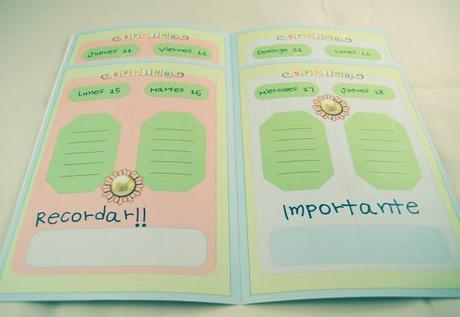 Jueves 11 Viernes 12
Domingo 21 Lunes 22
Lunes 15 Martes 16
Miercoles 17 Jueves 18
Recordar!!
Importante